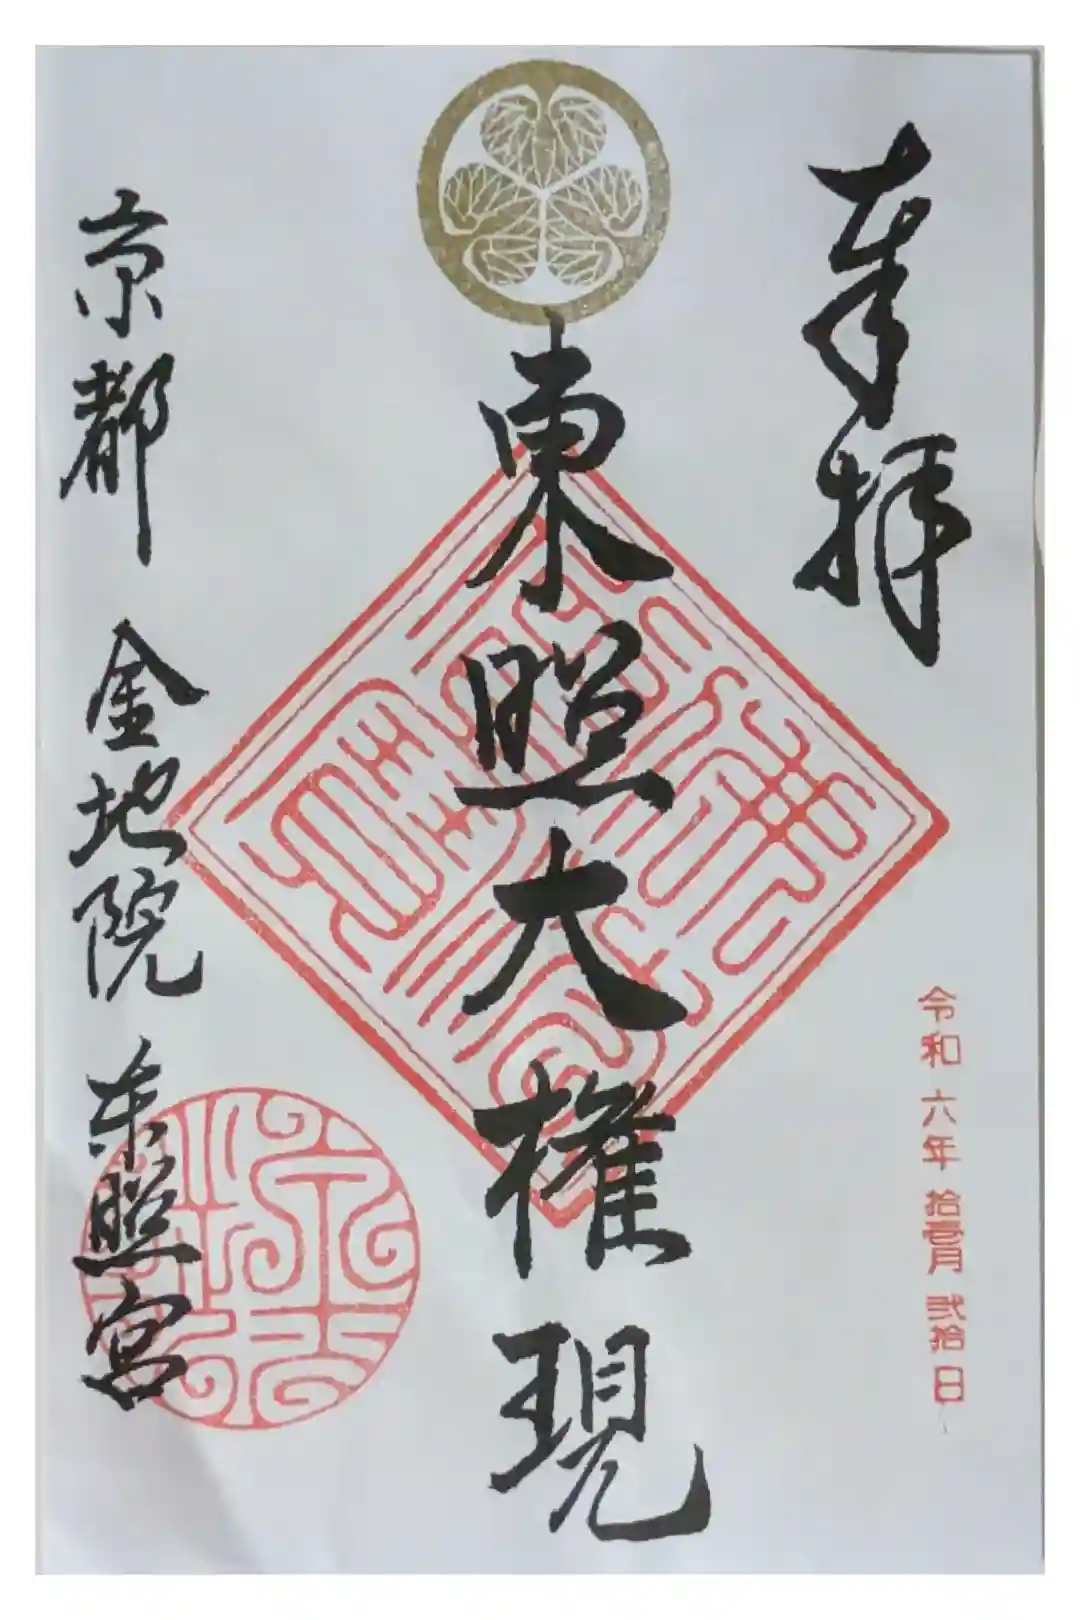 奉拝
令和六年拾壱月弐拾日
東照大権現
京都 金地院 東照宮